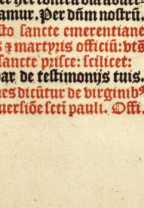 amur. Per dñm nostrũ.
sto sancte emerentiane
s ⁊ martyris officiũ: btẽ
sancte prisce: scilicet:
par de testimonijs tuis.
nes dicũtur de virginibꝰ
uersiõe scti pauli. Offi.